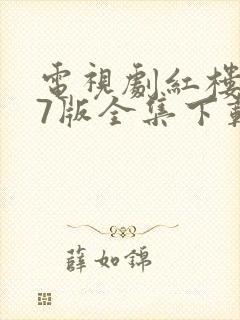 電視劇紅樓
7版全集下載
薛如錦